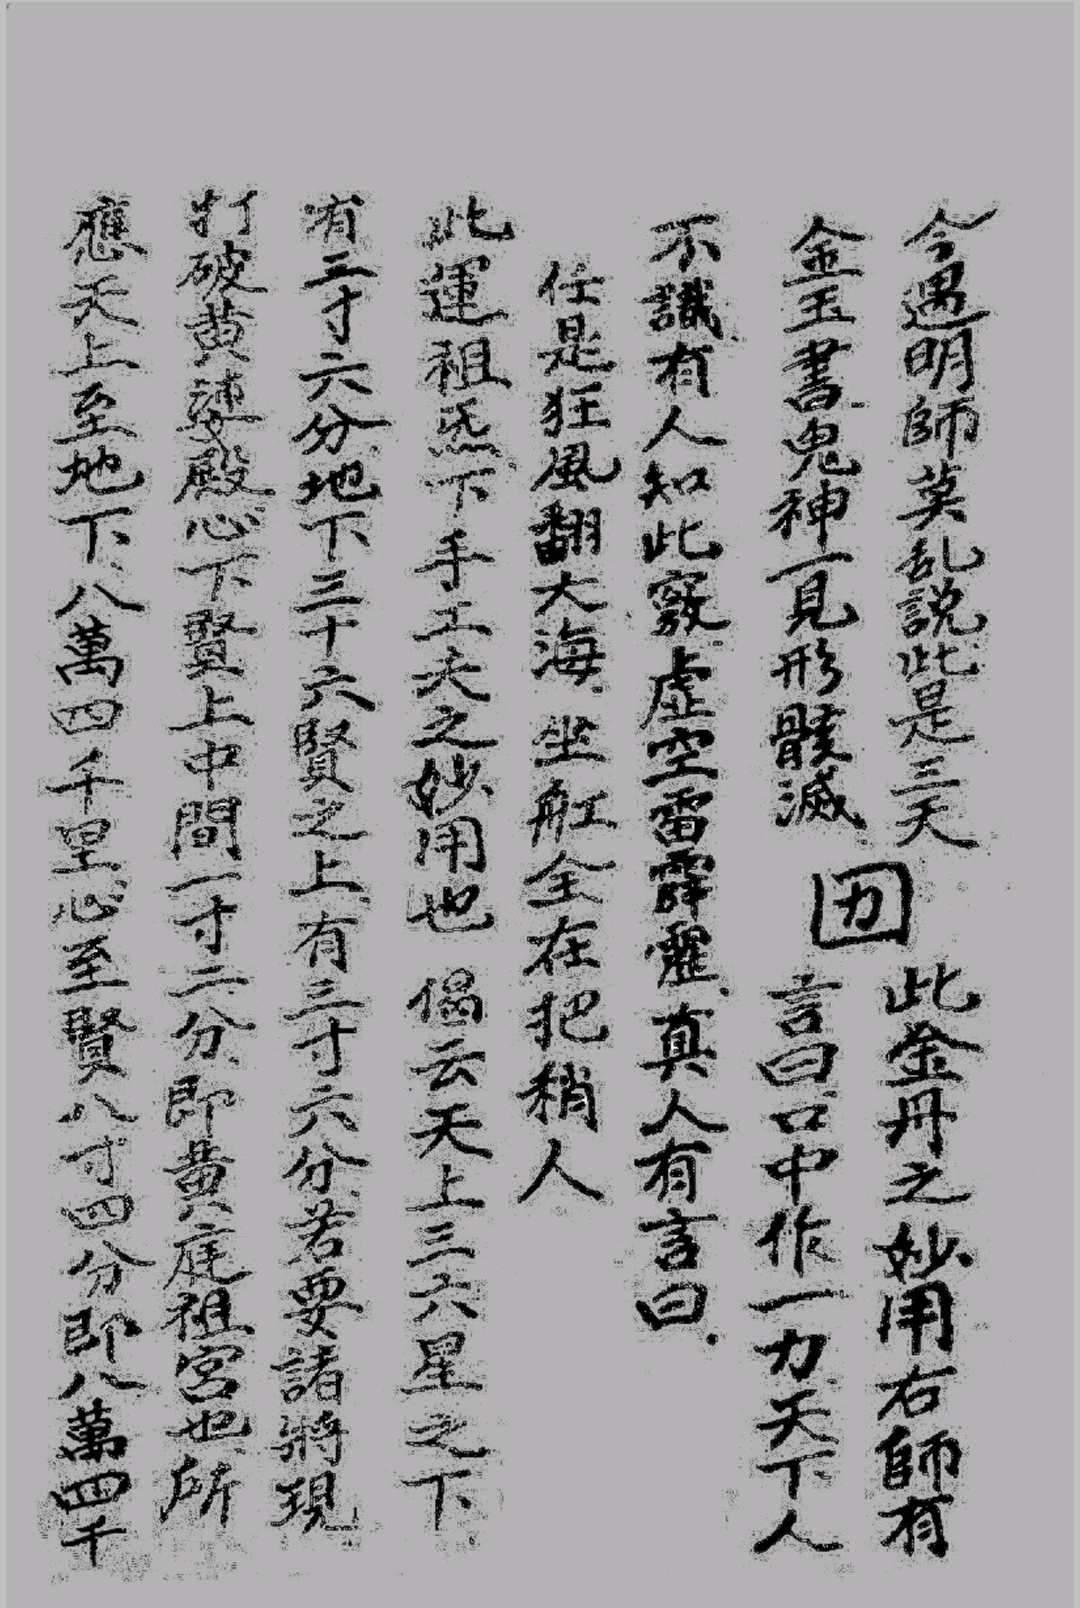 今遇明師莫乱說此是三天
金玉書鬼神一見形骸滅
囬
此金丹之妙用右師有
言曰口中作一力天下人
不識有人知此竅虛空雷霹靂真人有言曰
任是狂風翻大海坐舡全在把稍人
此運祖炁下手工夫之妙用也 偈云天上三六星之下
有三寸六分地下三十六賢之上有三寸六分若要諸將現
打破黃婆殿心下賢上中間一寸二分即黃庭祖宮也所
應天上至地下八萬四千里心至賢八寸四分即八萬四千